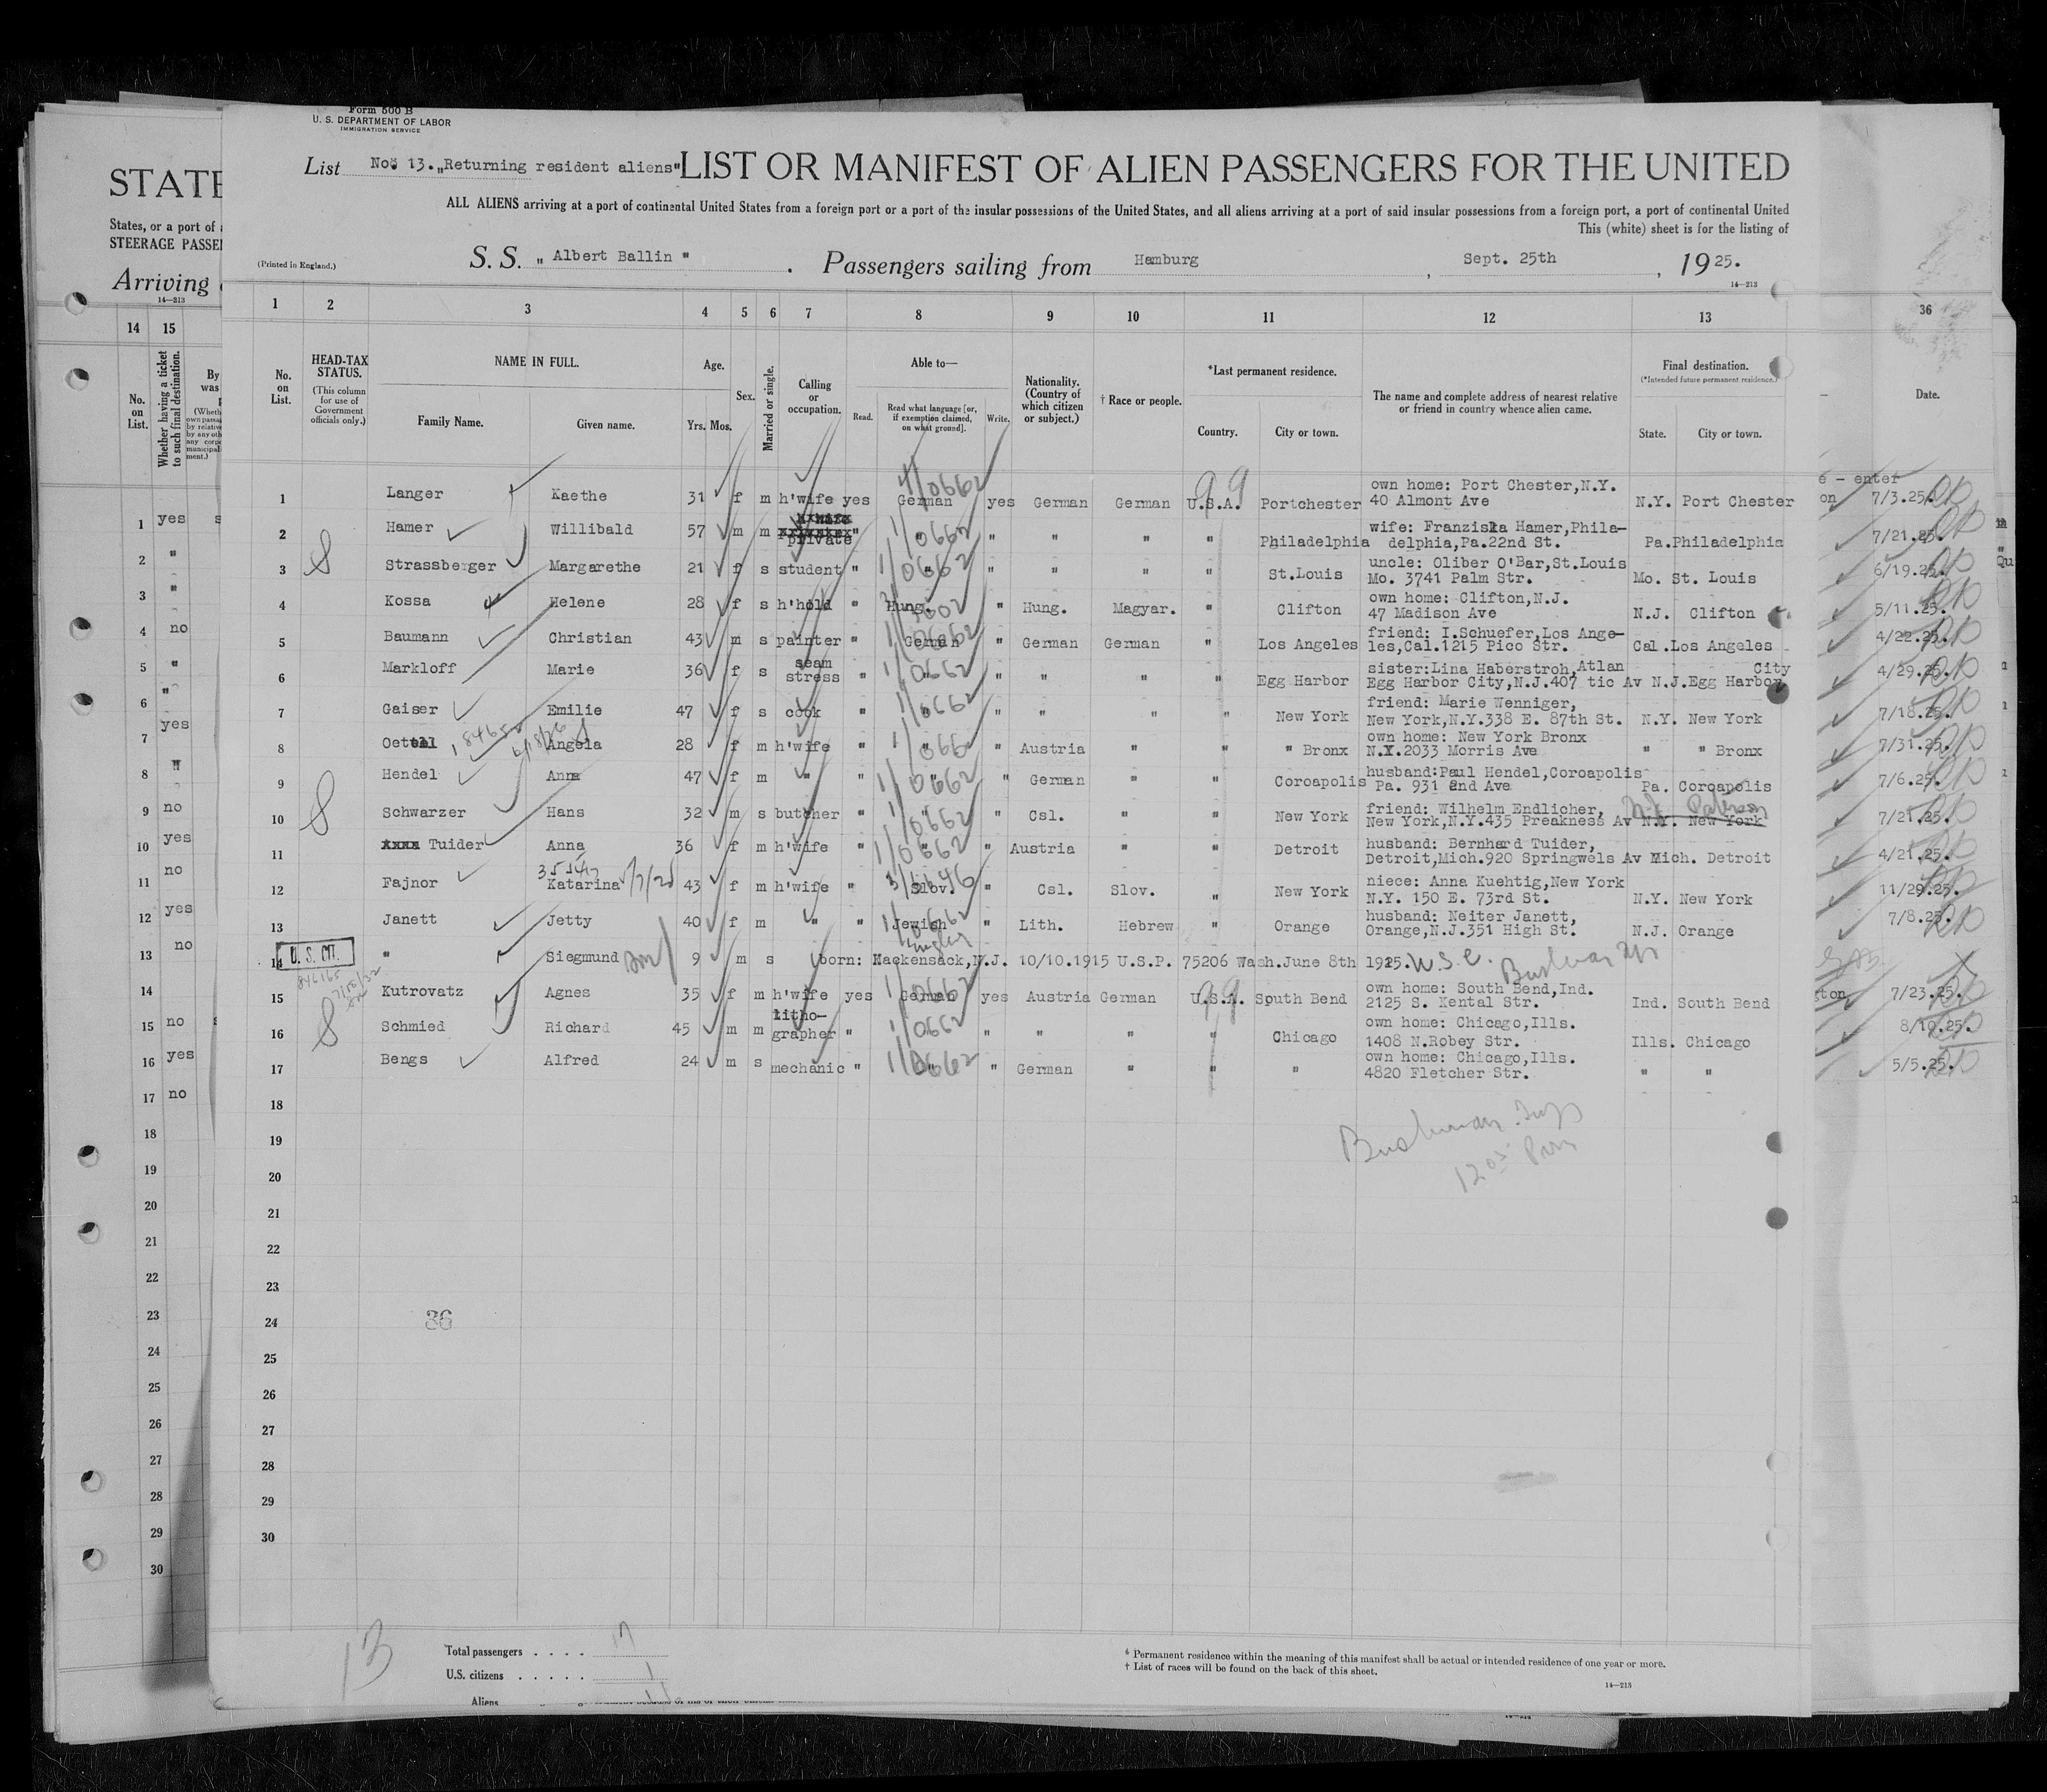 Form 500 B
U. S. DEPARTMENT OF LABOR
IMMIGRATION SERVICE
List No. 13. „Returning resident aliens" LIST OR MANIFEST OF ALIEN PASSENGERS FOR THE UNITED
ALL ALIENS arriving at a port of continental United States from a foreign port or a port of the insular possessions of the United States, and all aliens arriving at a port of said insular possessions from a foreign port, a port of continental United
This (white) sheet is for the listing of
(Printed in England.)
S. S. „ Albert Ballin " . Passengers sailing from Hamburg , Sept. 25th , 1925.
14—213
1 2 3 4 5 6 7 8 9 10 11 12 13
No. on List.
HEAD-TAX STATUS.
(This column for use of Government officials only.)
NAME IN FULL.
Family Name. Given name.
Age.
Yrs. Mos.
Sex.
Married or single.
Calling or occupation.
Able to—
Read. Read what language [or, if exemption claimed, on what ground]. Write.
Nationality. (Country of which citizen or subject.)
† Race or people.
*Last permanent residence.
Country. City or town.
The name and complete address of nearest relative or friend in country whence alien came.
Final destination.
(*Intended future permanent residence.)
State. City or town.
1 Langer Kaethe 31 f m h'wife yes German yes German German U.S.A. Portchester own home: Port Chester,N.Y. 40 Almont Ave N.Y. Port Chester
2 Hamer Willibald 57 m m private " " " " " " Philadelphia wife: Franziska Hamer,Phila-delphia,Pa.22nd St. Pa.Philadelphia
3 Strassberger Margarethe 21 f s student " " " " " " St.Louis uncle: Oliber O'Bar,St.Louis Mo. 3741 Palm Str. Mo. St. Louis
4 Kossa Helene 28 f s h'hold " Hung. " Hung. Magyar. " Clifton own home: Clifton,N.J. 47 Madison Ave N.J. Clifton
5 Baumann Christian 43 m s painter " German " German German " Los Angeles friend: I.Schuefer,Los Ange-les,Cal.1215 Pico Str. Cal.Los Angeles
6 Markloff Marie 36 f s seam stress " " " " " " Egg Harbor sister:Lina Haberstroh,Atlan Egg Harbor City,N.J.407 tic Av N.J.Egg Harbor City
7 Gaiser Emilie 47 f s cook " " " " " " New York friend: Marie Wenniger, New York,N.Y.338 E. 87th St. N.Y. New York
8 Oettl Angela 28 f m h'wife " " " Austria " " " Bronx own home: New York Bronx N.Y.2033 Morris Ave " " Bronx
9 Hendel Anna 47 f m " " " " German " " Coroapolis husband:Paul Hendel,Coroapolis Pa. 931 2nd Ave Pa. Coroapolis
10 Schwarzer Hans 32 m s butcher " " " Csl. " " New York friend: Wilhelm Endlicher, New York,N.Y.435 Preakness Av N.Y. New York
N.J. Paterson
11 Tuider Anna 36 f m h'wife " " " Austria " " Detroit husband: Bernhard Tuider, Detroit,Mich.920 Springwels Av Mich. Detroit
12 Fajnor Katarina 43 f m h'wife " Slov. " Csl. Slov. " New York niece: Anna Kuehtig,New York N.Y. 150 E. 73rd St. N.Y. New York
13 Janett Jetty 40 f m " " Jewish " Lith. Hebrew " Orange husband: Neiter Janett, Orange,N.J.351 High St. N.J. Orange
14 U. S. CIT. " Siegmund son 9 m s born: Hackensack,N.J. 10/10.1915 U.S.P. 75206 Wash.June 8th 1925. U.S.C.
15 Kutrovatz Agnes 35 f m h'wife yes German yes Austria German U.S.A. South Bend own home: South Bend,Ind. 2125 S. Kental Str. Ind. South Bend
16 Schmied Richard 45 m m litho-grapher " " " " " " Chicago own home: Chicago,Ills. 1408 N.Robey Str. Ills. Chicago
17 Bengs Alfred 24 m s mechanic " " " German " " " own home: Chicago,Ills. 4820 Fletcher Str. " "
18
19
20
21
22
23
24
25
26
27
28
29
30
36
13
Total passengers . . . . 17
U.S. citizens . . . . . 1
Aliens
* Permanent residence within the meaning of this manifest shall be actual or intended residence of one year or more.
† List of races will be found on the back of this sheet.
14—213
STATE
States, or a port of
STEERAGE PASSE
Arriving
14—213
14 15
No. on List.
Whether having a ticket to such final destination.
By
was
1 yes
2 "
3 "
4 no
5 "
6 "
7 yes
8 "
9 no
10 yes
11 no
12 yes
13 no
14
15 no
16 yes
17 no
18
19
20
21
22
23
24
25
26
27
28
29
30
36
Date.
7/3.25.
7/21.25.
6/19.25.
5/11.25.
4/22.25.
4/29.25.
7/18.25.
7/31.25.
7/6.25.
7/21.25.
4/21.25.
11/29.25.
7/8.25.
7/23.25.
8/10.25.
5/5.25.